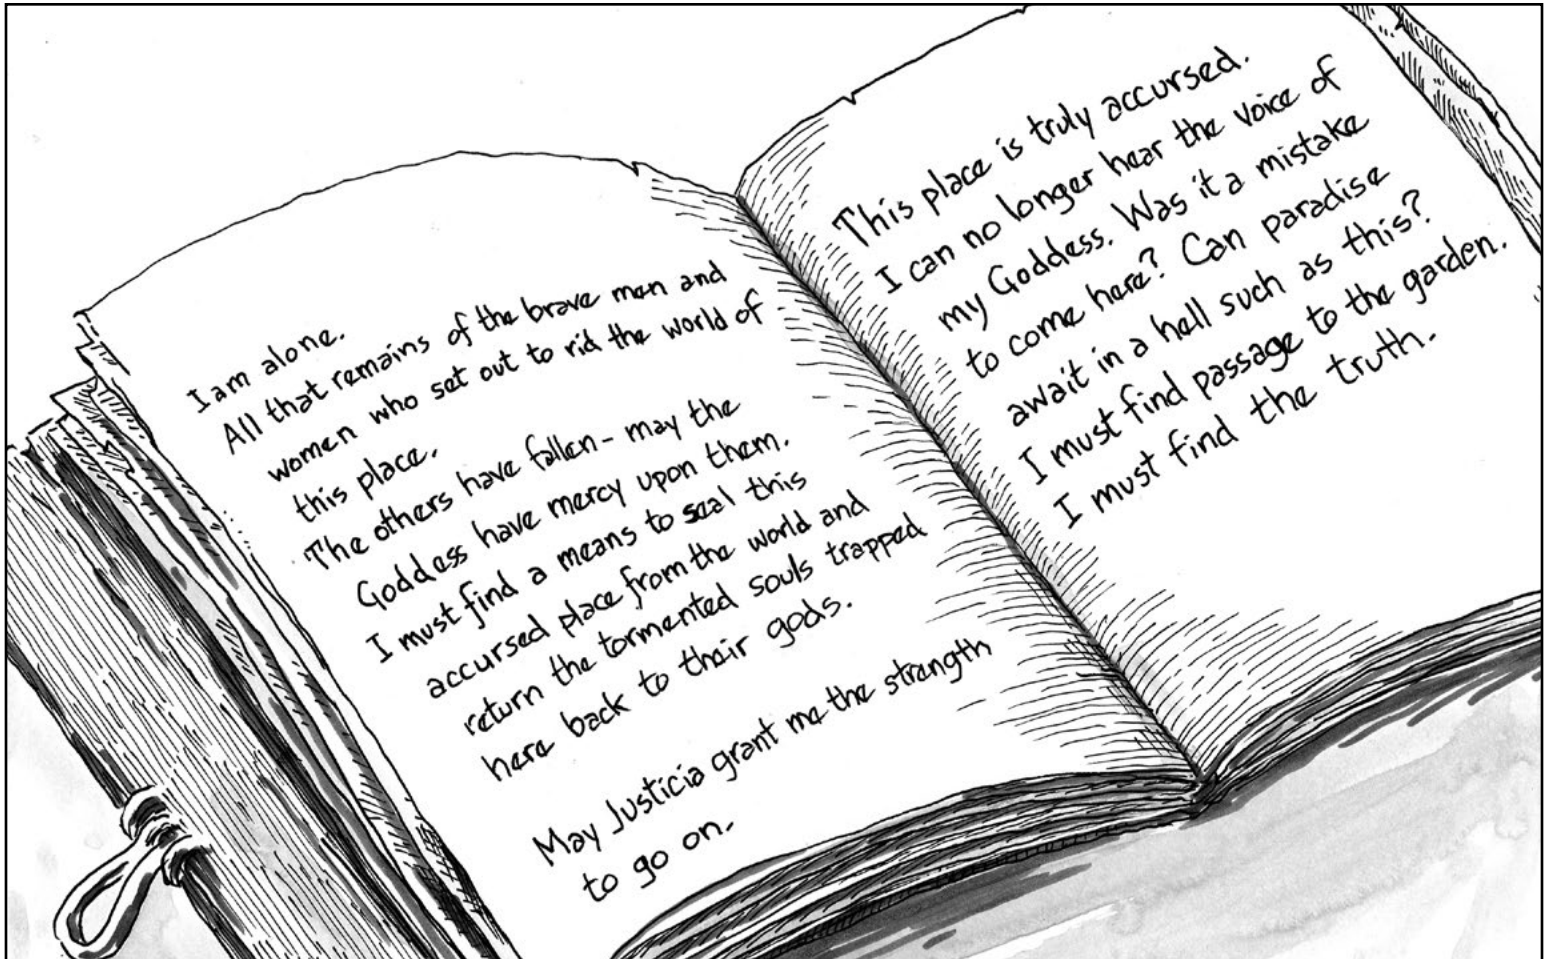 I am alone.
All that remains of the brave men and
women who set out to rid the world of
this place.
The others have fallen - may the
Goddess have mercy upon them.
I must find a means to seal this
accursed place from the world and
return the tormented souls trapped
here back to their gods.
May Justicia grant me the strength
to go on.
This place is truly accursed.
I can no longer hear the voice of
my Goddess. Was it a mistake
to come here? Can paradise
await in a hell such as this?
I must find passage to the garden.
I must find the truth.